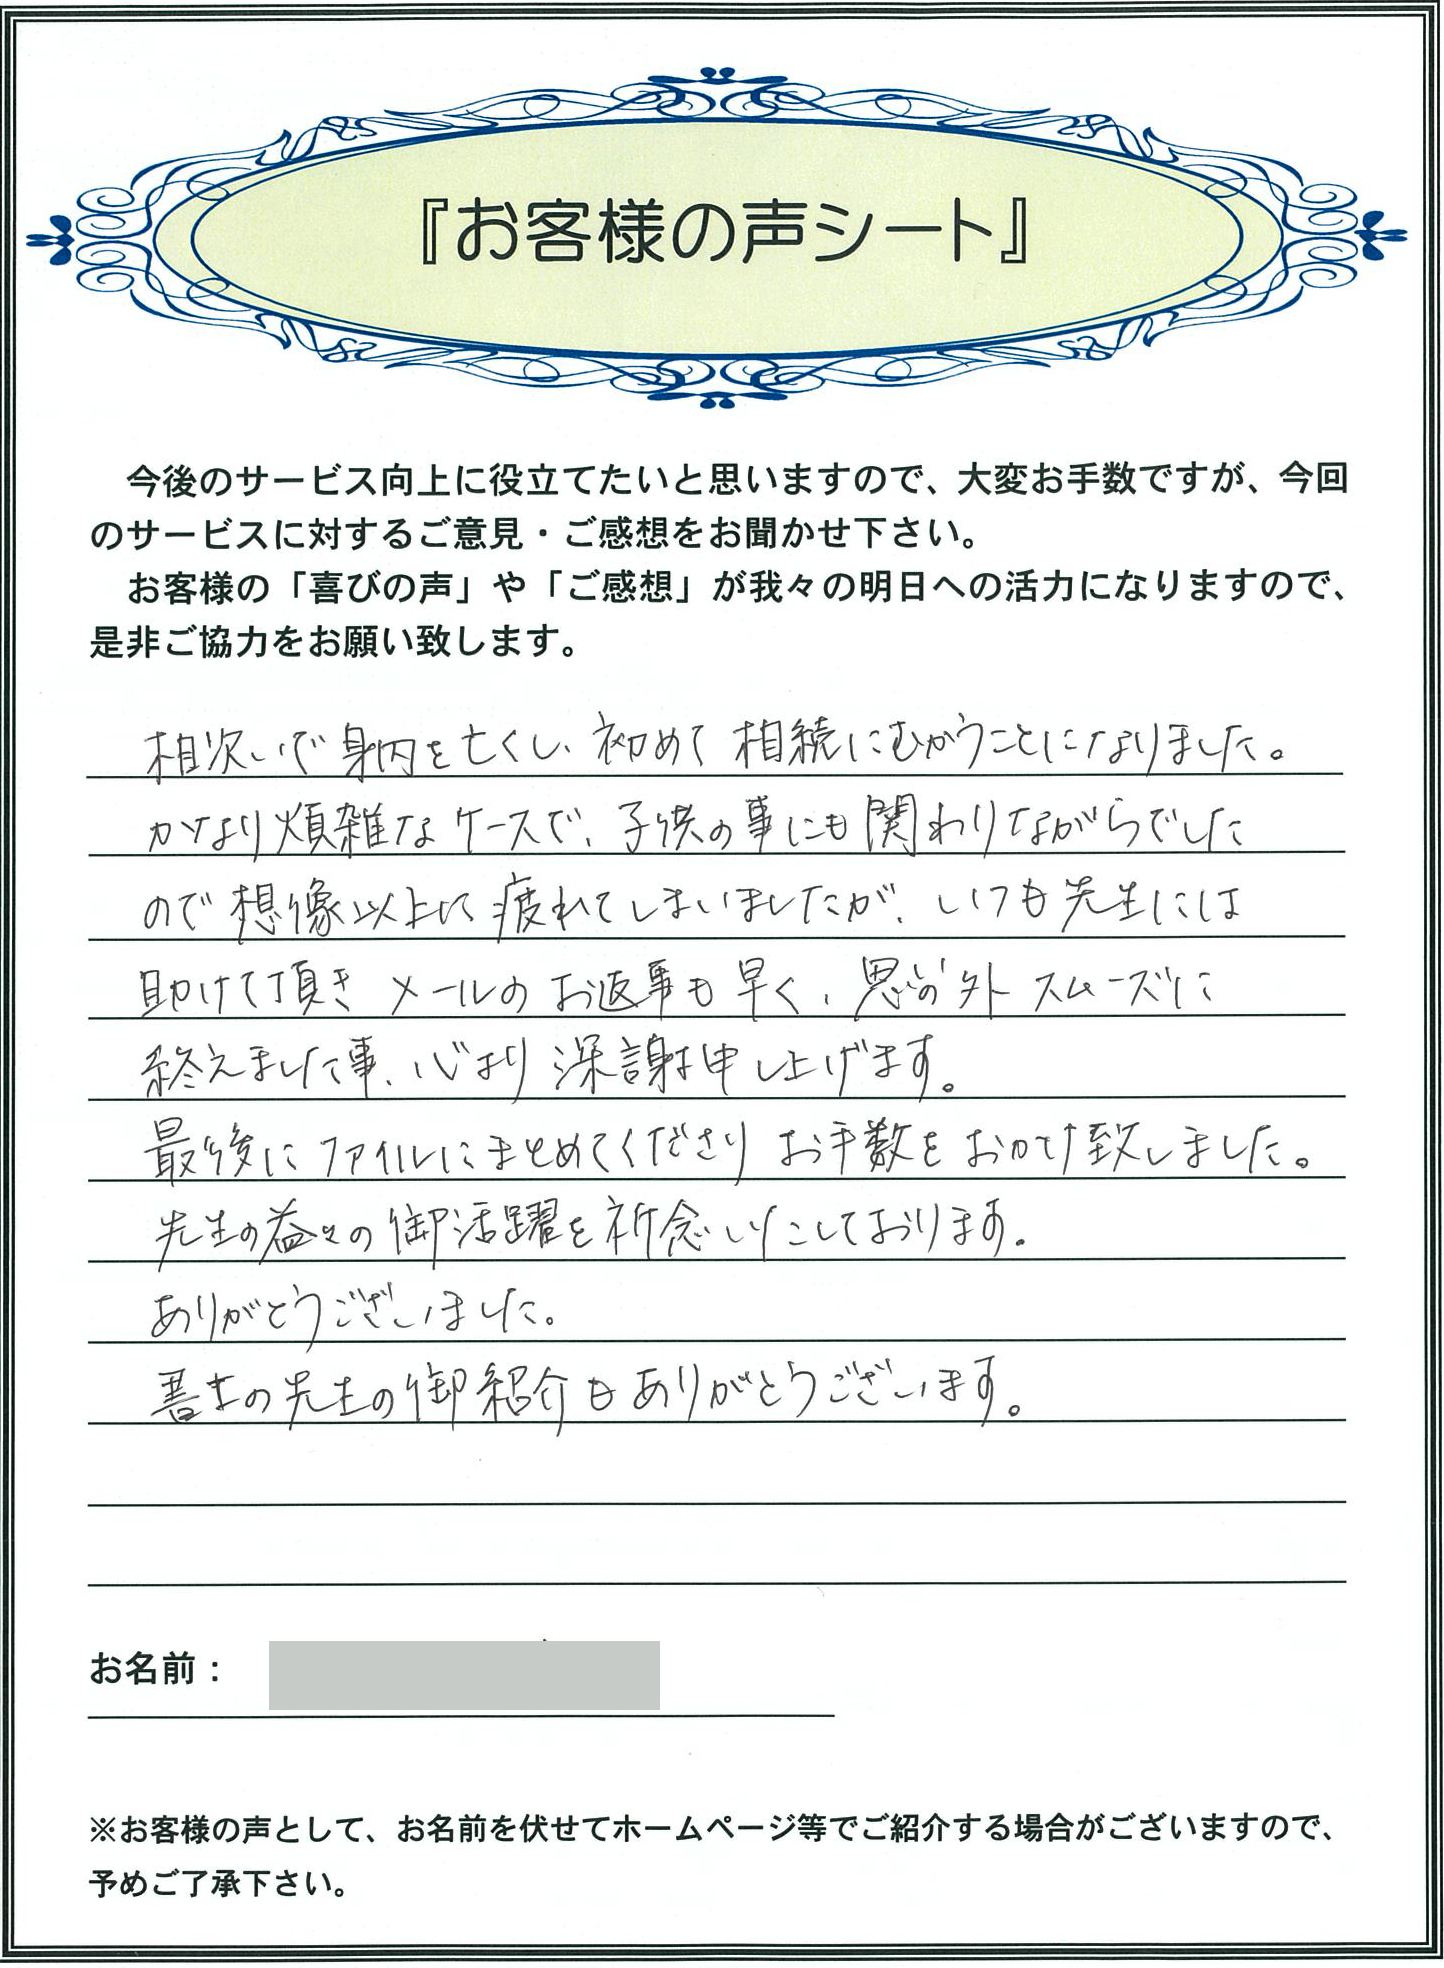 『お客様の声シート』
今後のサービス向上に役立てたいと思いますので、大変お手数ですが、今回
のサービスに対するご意見・ご感想をお聞かせ下さい。
お客様の「喜びの声」や「ご感想」が我々の明日への活力になりますので、
是非ご協力をお願い致します。
相次いで身内を亡くし、初めて相続にむかうことになりました。
かなり煩雑なケースで、子供の事にも関わりながらでした
ので想像以上に疲れてしまいましたが、いつも先生には
助けて頂きメールのお返事も早く、思いの外スムーズに
終えました事、心より深謝申し上げます。
最後にファイルにまとめてくださりお手数をおかけ致しました。
先生の益々の御活躍を祈念しております。
ありがとうございました。
の先生の御紹介もありがとうございます。
お名前：
※お客様の声として、お名前を伏せてホームページ等でご紹介する場合がございますので、
予めご了承下さい。